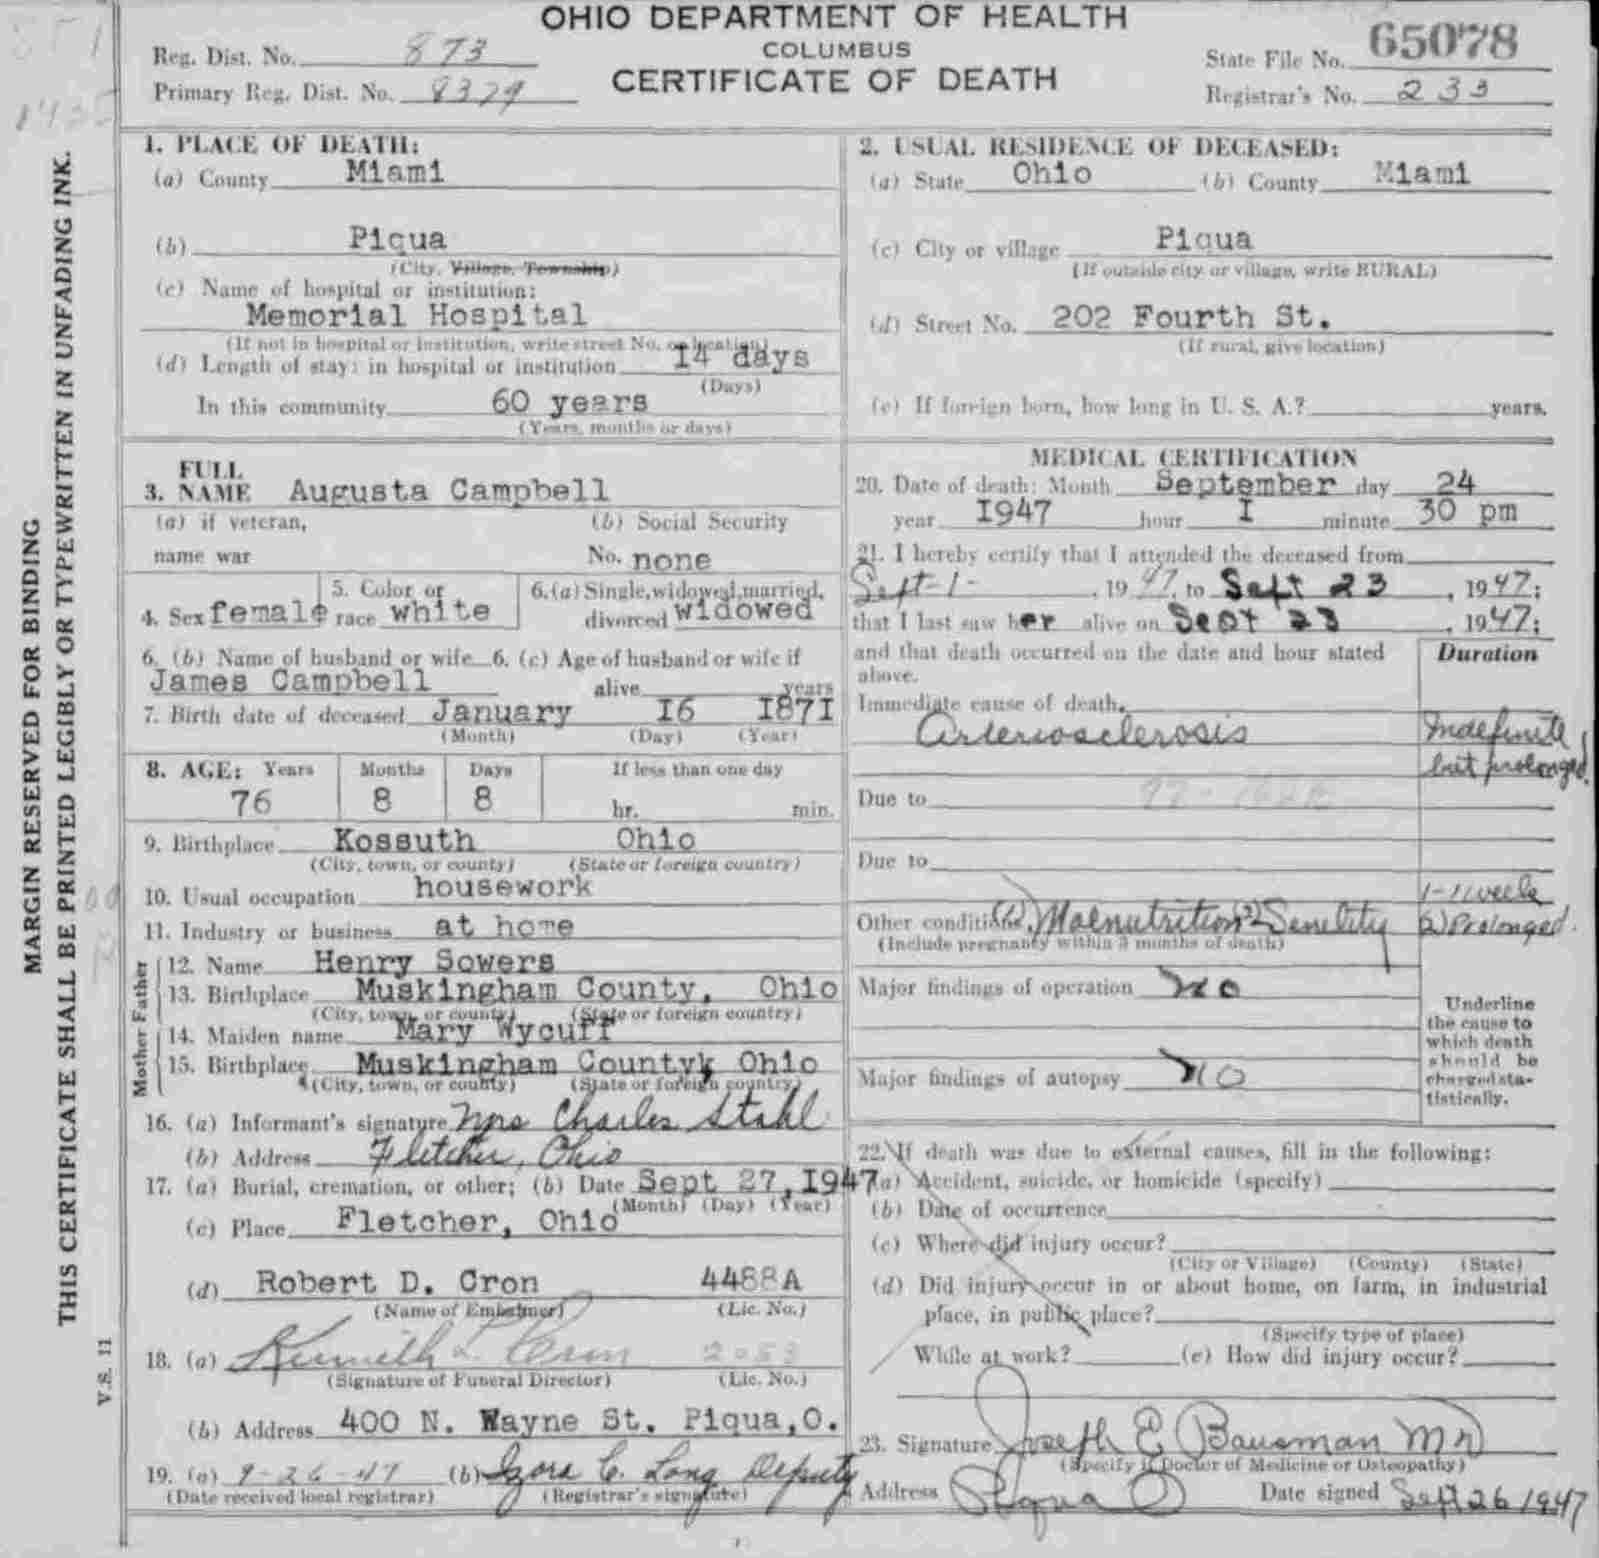 OHIO DEPARTMENT OF HEALTH
COLUMBUS
CERTIFICATE OF DEATH
Reg. Dist. No. 873
Primary Reg. Dist. No. 8379
State File No. 65078
Registrar's No. 233
MARGIN RESERVED FOR BINDING
THIS CERTIFICATE SHALL BE PRINTED LEGIBLY OR TYPEWRITTEN IN UNFADING INK.
V.S. 11
1. PLACE OF DEATH:
(a) County Miami
(b) Piqua
(City, Village, Township)
(c) Name of hospital or institution:
Memorial Hospital
(If not in hospital or institution, write street No. or location)
(d) Length of stay: in hospital or institution 14 days
(Days)
In this community 60 years
(Years, months or days)
2. USUAL RESIDENCE OF DECEASED:
(a) State Ohio (b) County Miami
(c) City or village Piqua
(If outside city or village, write RURAL)
(d) Street No. 202 Fourth St.
(If rural, give location)
(e) If foreign born, how long in U. S. A.? years.
3. FULL NAME Augusta Campbell
(a) if veteran, (b) Social Security
name war No. none
4. Sex female 5. Color or race white 6. (a) Single, widowed, married, divorced widowed
6. (b) Name of husband or wife 6. (c) Age of husband or wife if
James Campbell alive years
7. Birth date of deceased January I6 I87I
(Month) (Day) (Year)
8. AGE: Years Months Days If less than one day
76 8 8 hr. min.
9. Birthplace Kossuth Ohio
(City, town, or county) (State or foreign country)
10. Usual occupation housework
11. Industry or business at home
Mother Father
12. Name Henry Sowers
13. Birthplace Muskingham County, Ohio
(City, town, or county) (State or foreign country)
14. Maiden name Mary Wycuff
15. Birthplace Muskingham Countyk Ohio
(City, town, or county) (State or foreign country)
16. (a) Informant's signature Mrs Charles Stahl
(b) Address Fletcher, Ohio
17. (a) Burial, cremation, or other; (b) Date Sept 27, I947
(Month) (Day) (Year)
(c) Place Fletcher, Ohio
(d) Robert D. Cron 4488A
(Name of Embalmer) (Lic. No.)
18. (a) Kenneth L Cron 2053
(Signature of Funeral Director) (Lic. No.)
(b) Address 400 N. Wayne St. Piqua, O.
19. (a) 9-26-47 (b) Izora C. Long Deputy
(Date received local registrar) (Registrar's signature)
MEDICAL CERTIFICATION
20. Date of death: Month September day 24
year I947 hour I minute 30 pm
21. I hereby certify that I attended the deceased from
Sept-1-, 1947, to Sept 23, 1947;
that I last saw her alive on Sept 23, 1947;
and that death occurred on the date and hour stated
above.
Duration
Immediate cause of death.
Arteriosclerosis Indefinite
but prolonged.
Due to
Due to
1-1 week
Other conditions (1) Malnutrition (2) Senelity (2) Prolonged.
(Include pregnancy within 3 months of death)
Major findings of operation no
Major findings of autopsy no
Underline
the cause to
which death
should be
charged sta-
tistically.
22. If death was due to external causes, fill in the following:
(a) Accident, suicide, or homicide (specify)
(b) Date of occurrence
(c) Where did injury occur?
(City or Village) (County) (State)
(d) Did injury occur in or about home, on farm, in industrial
place, in public place?
(Specify type of place)
While at work? (e) How did injury occur?
23. Signature Joseph E Bausman MD
(Specify if Doctor of Medicine or Osteopathy)
Address Piqua O Date signed Sept 26 1947